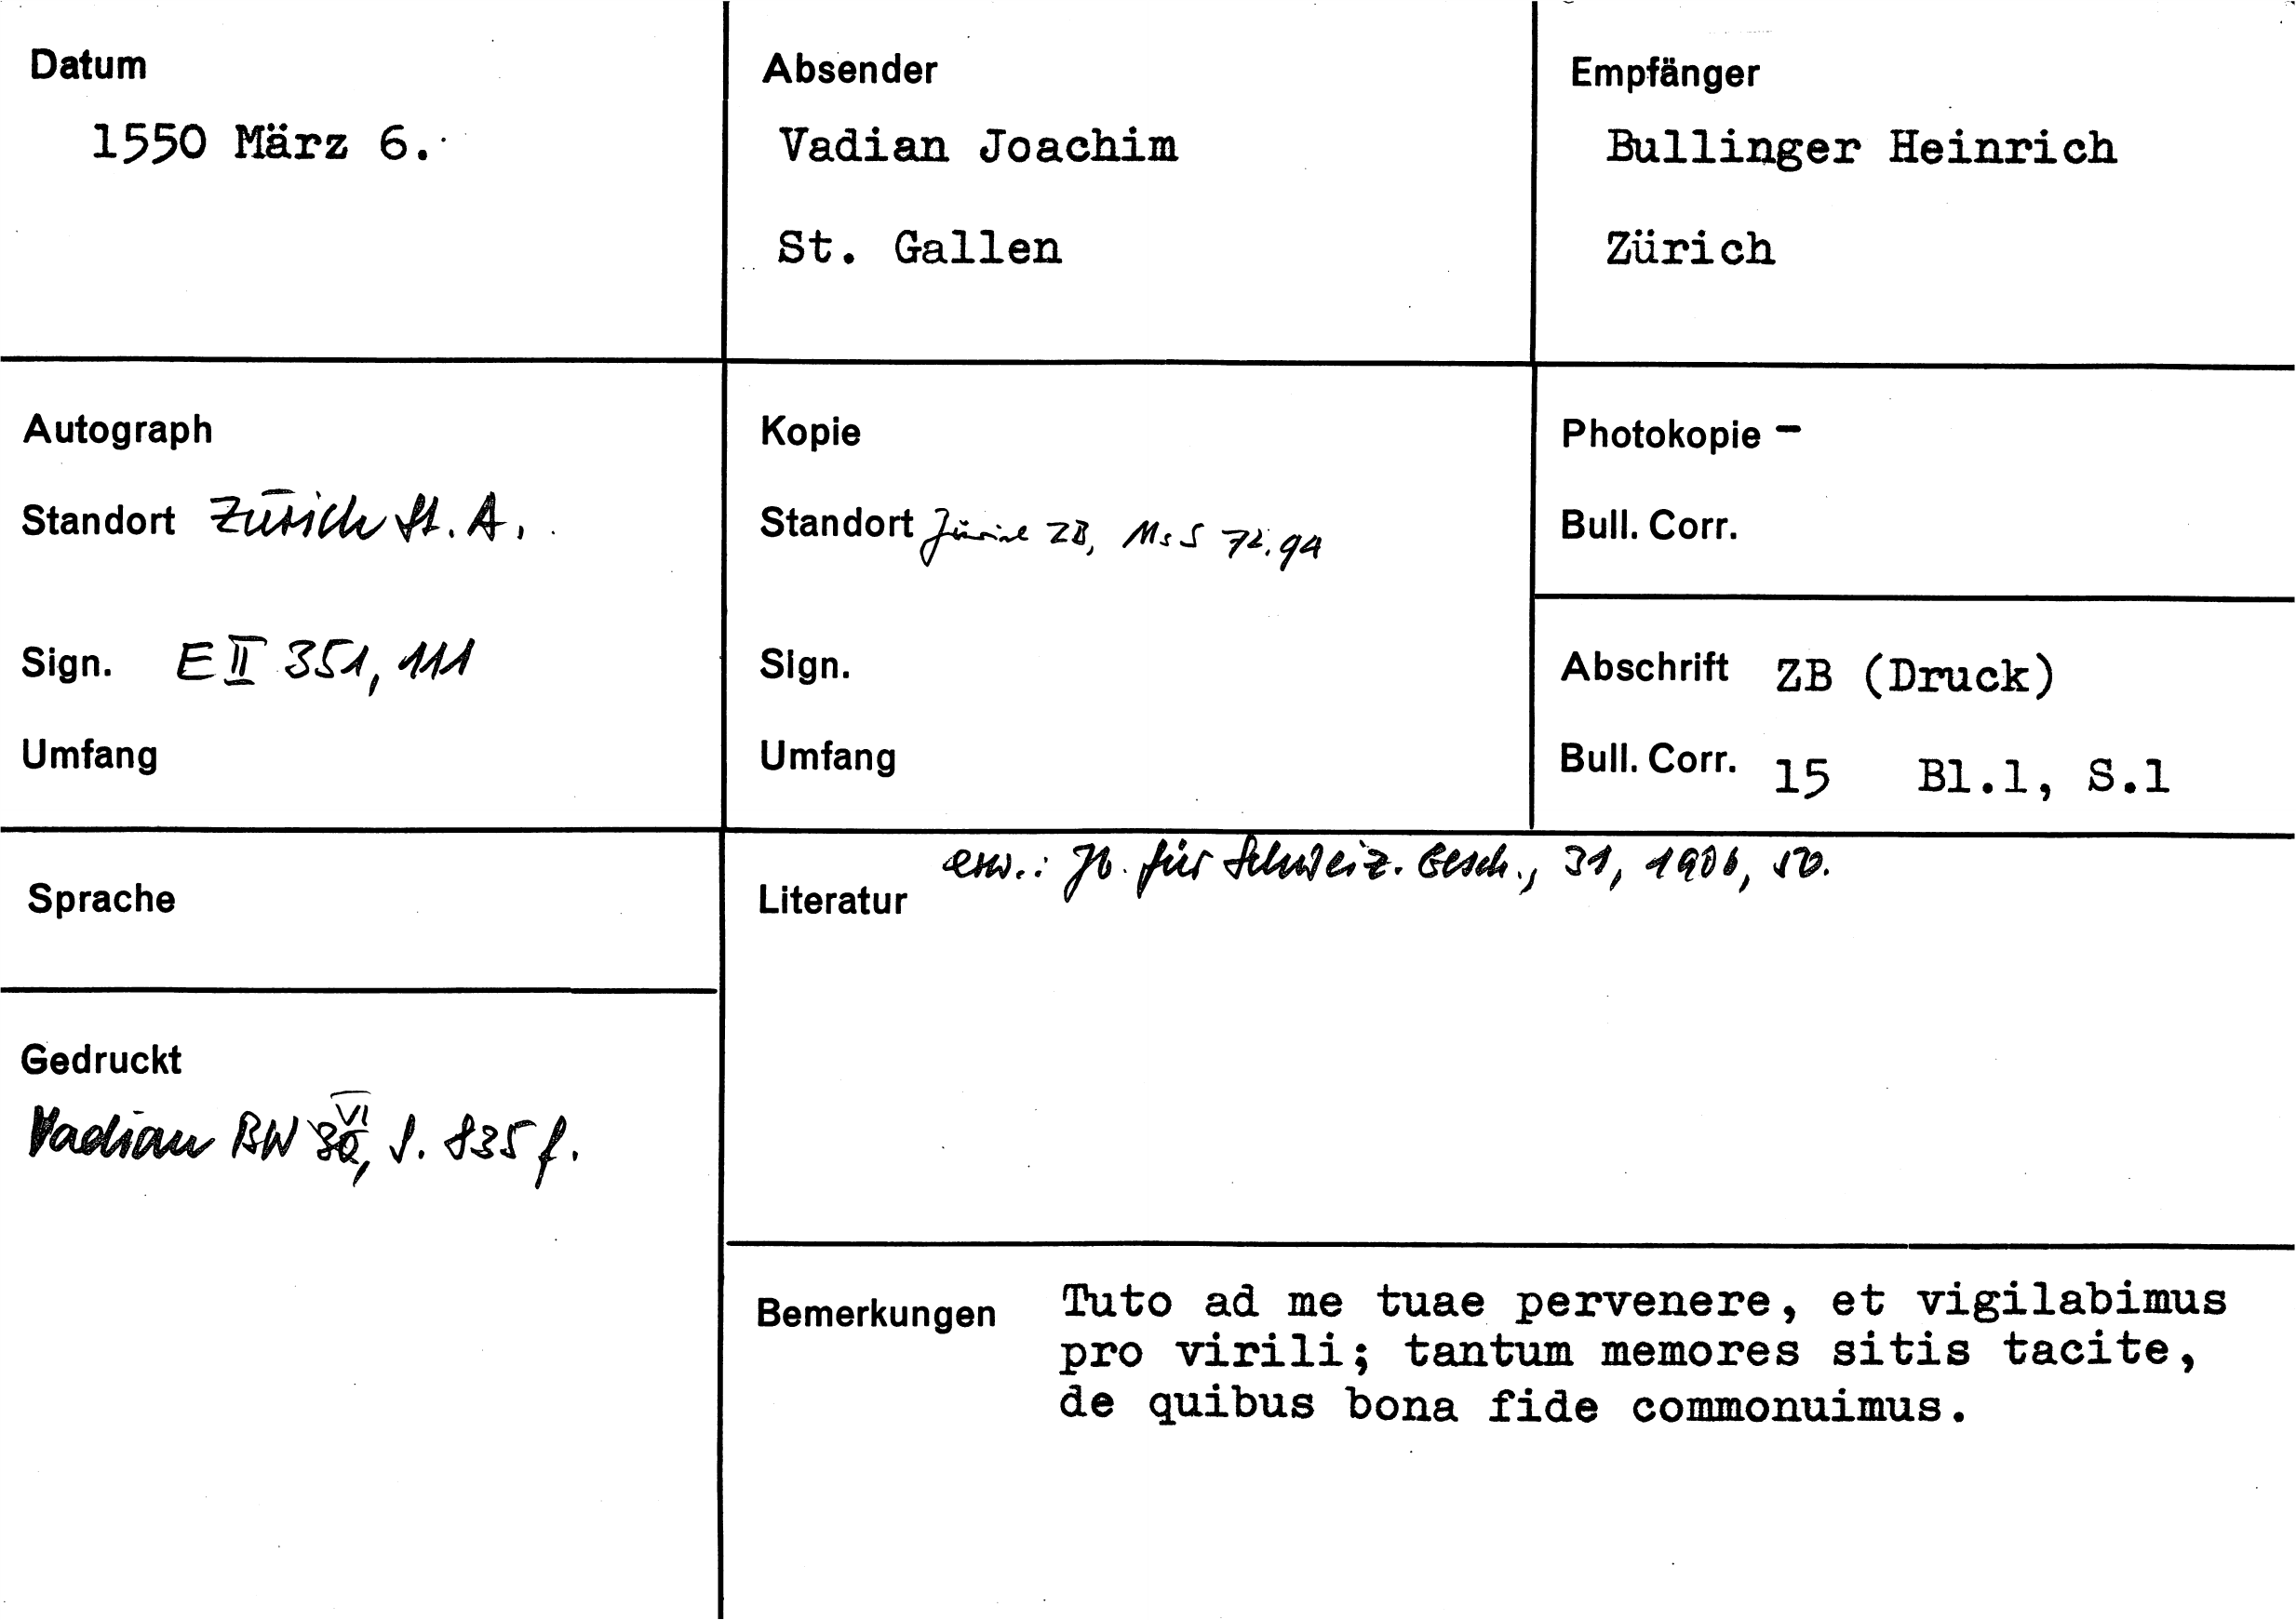 Datum
1550 März 6.
Absender
Vadian Joachim
St. Gallen
Empfänger
Bullinger Heinrich
Zürich
Autograph
Standort Zürich St. A.
Sign. E II 351, 111
Umfang
Kopie
Standort Zürich ZB, Ms S 72, 94
Sign.
Umfang
Photokopie -
Bull. Corr.
Abschrift ZB (Druck)
Bull. Corr. 15 Bl.1, S.1
Sprache
Gedruckt
Vadian BW VI, S. 835 f.
Literatur erw.: Jb. für Schweiz. Gesch., 31, 1906,
Bemerkungen Tuto ad me tuae pervenere, et vigilabimus
pro virili; tantum memores sitis tacite,
de quibus bona fide commonuimus.